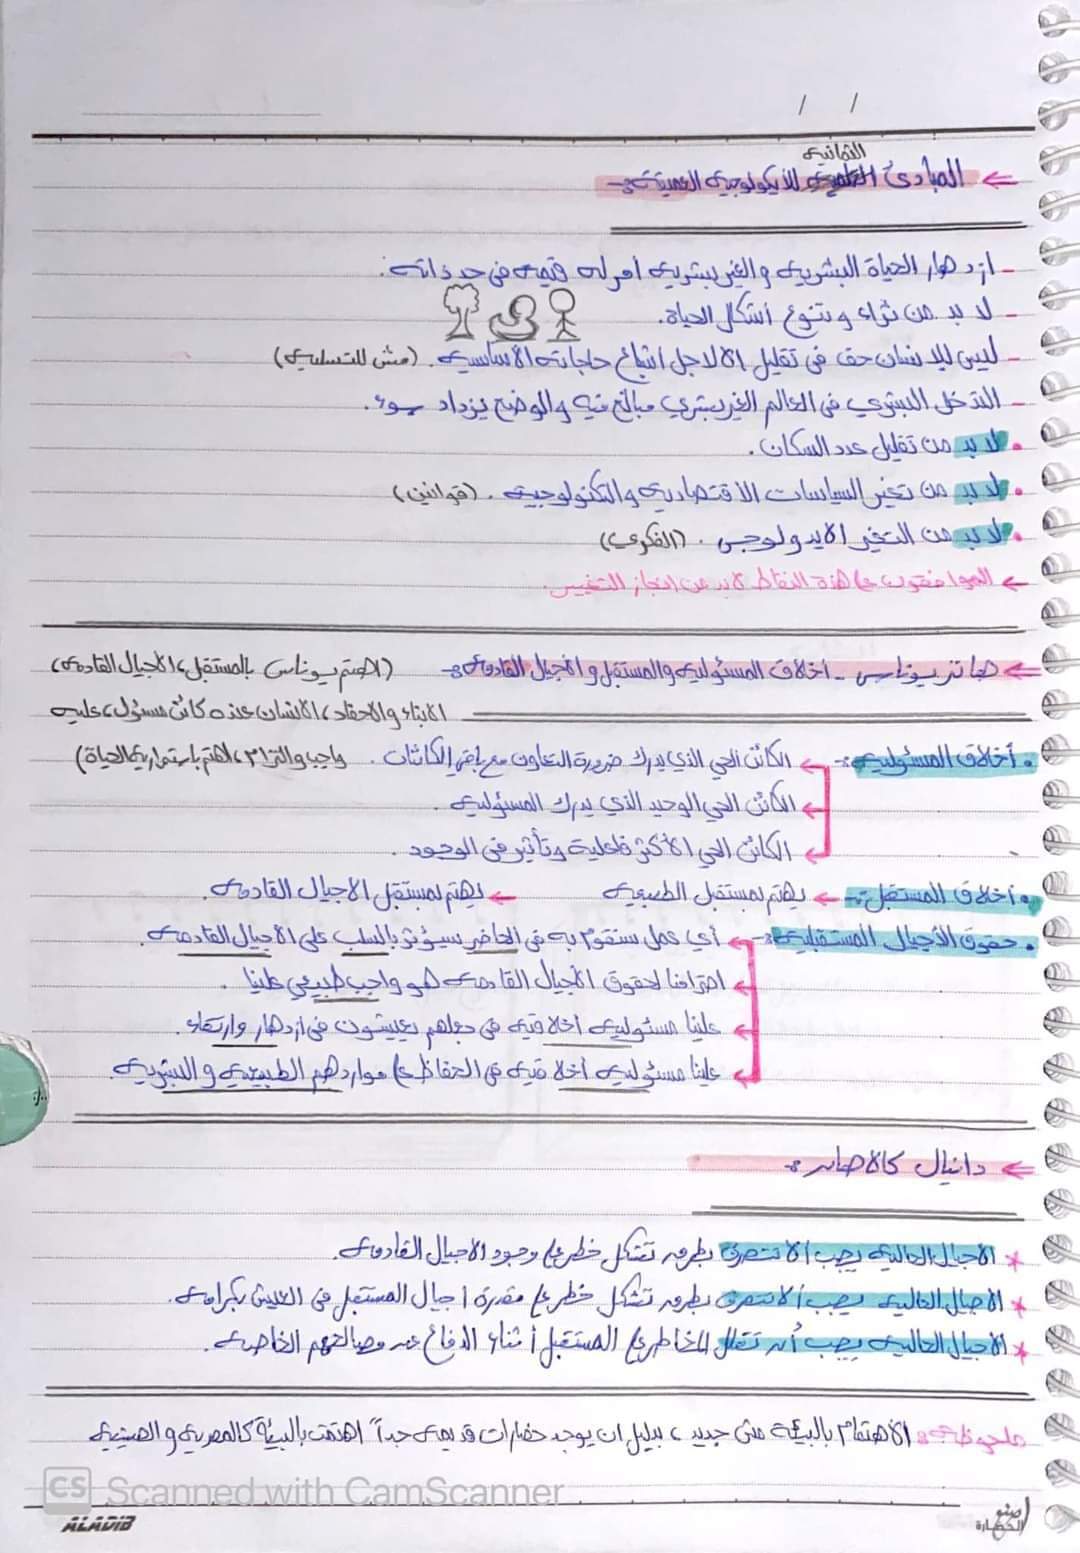 / /
الثمانيه
← المبادئ للأيكولوجيه العميقة :-
- ازدهار الحياة البشريه والغير بشريه أمر له قيمه في حد ذاته.
- لا بد من ثراء وتنوع أشكال الحياة.
- ليس للإنسان حق في تقليل إلا لاجل اشباع حاجاته الأساسيه. (مش للتسليه)
- التدخل البشري في العالم الغير بشري مبالغ فيه والوضع يزداد سوء.
• لا بد من تقليل عدد السكان.
• لا بد من تغير السياسات الاقتصاديه والتكنولوجيه. (قوانين)
• لا بد من التغير الايدولوجي. (الفكري)
← الموافقون ع هذه النقاط لابد من انجاز التغيير.
← هانز يوناس - أخلاق المسئوليه والمستقبل والأجيال القادمه :- (اهتم يوناس بالمستقبل، الأجيال القادمه)
الابناء والاحفاد، الانسان عنده كائن مسئول، عليه
• أخلاق المسئوليه :- ← الكائن الحي الذي يدرك ضرورة التعاون مع باقي الكائنات. واجب والتزام، اهتم باستمرارية الحياة)
← الكائن الحي الوحيد الذي يدرك المسئوليه.
← الكائن الحي الأكثر فاعلية وتأثير في الوجود.
• أخلاق المستقبل :- ← يهتم بمستقبل الطبيعيه ← يهتم بمستقبل الاجيال القادمه.
• حقوق الأجيال المستقبليه :- ← أي عمل سنقوم به في الحاضر سيؤثر بالسلب على الأجيال القادمه.
← احترامنا لحقوق الأجيال القادمه هو واجب طبيعي علينا.
← علينا مسئوليه أخلاقيه في جعلهم يعيشون في ازدهار وارتقاء.
← علينا مسئوليه أخلاقيه في الحفاظ ع مواردهم الطبيعيه والبشريه.
← دانيال كالاهان :-
* الأجيال الحاليه يجب ألا تتصرف بطرق تشكل خطر ع وجود الأجيال القادمه.
* الأجيال الحاليه يجب ألا تتصرف بطرق تشكل خطر ع مقدرة أجيال المستقبل في العيش بكرامه.
* الأجيال الحاليه يجب أن تقلل المخاطر ع المستقبل أثناء الدفاع عن مصالحهم الخاصه.
ملحوظه: الأهتمام بالبيئه مش جديد، بدليل ان يوجد حضارات قديمه جداً اهتمت بالبيئه كالمصريه والصينيه
CS Scanned with CamScanner
ALADIB
صنع
الحضارة